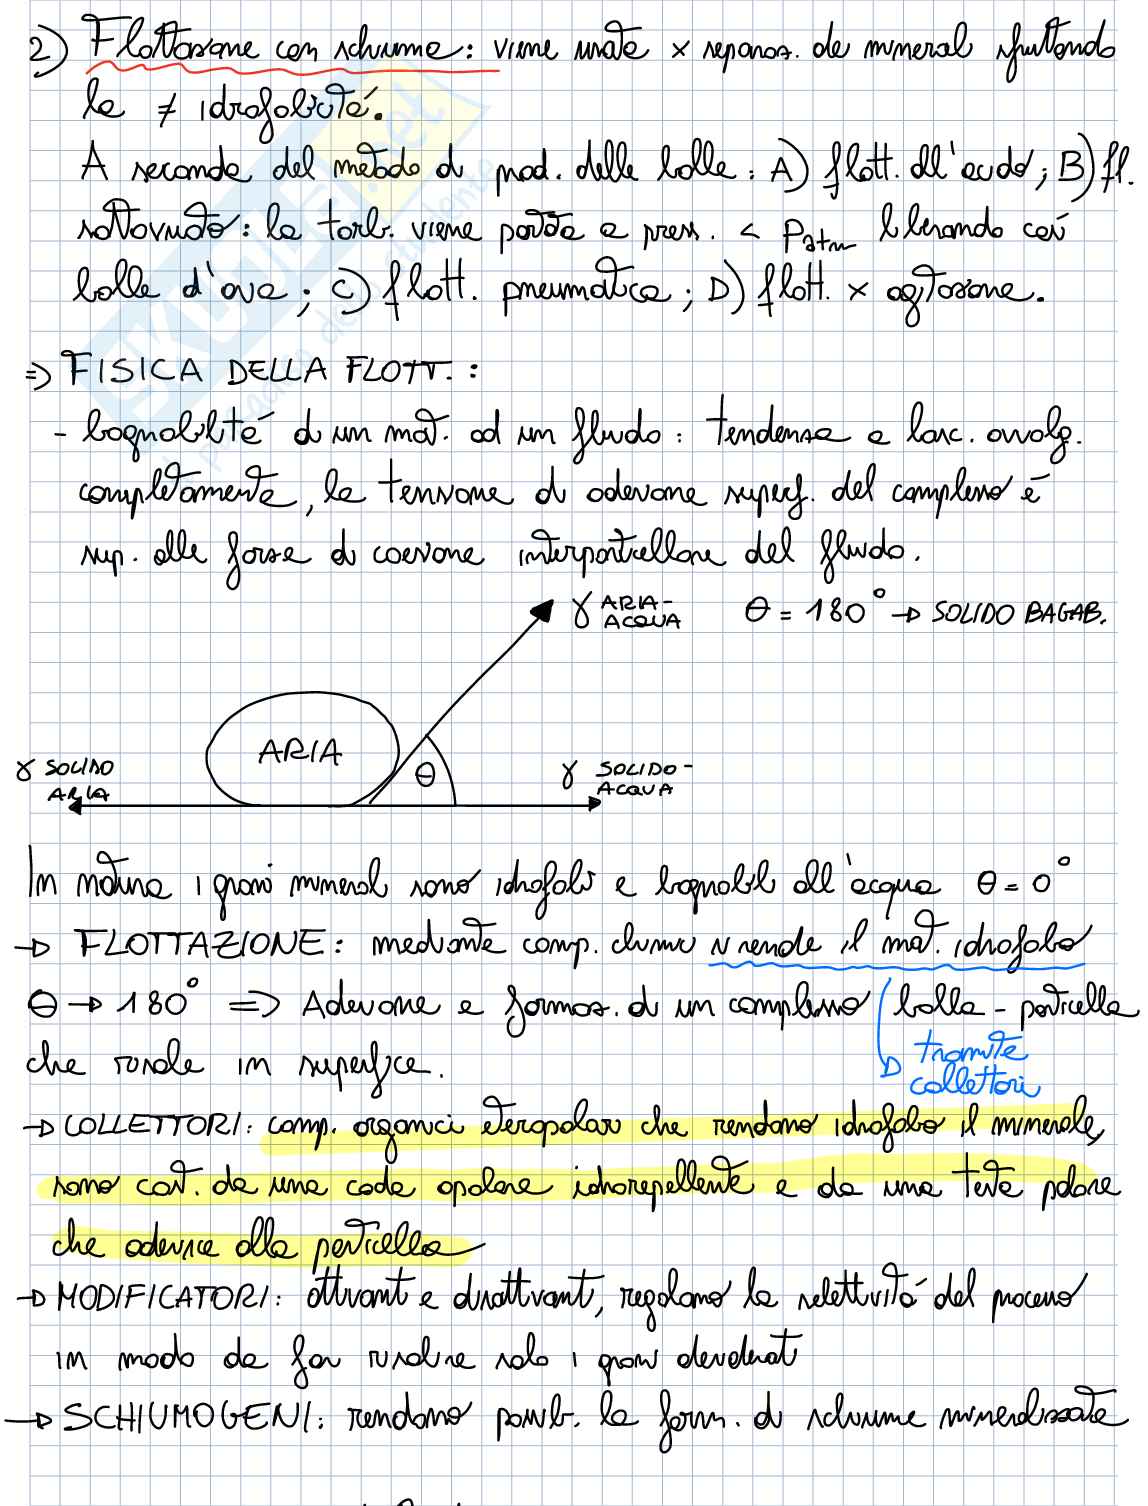 2) Flottazione con schiume: viene usata x separaz. de mineral sfruttando
la ≠ idrofobicità.
A seconda del metodo di prod. delle bolle: A) flott. all'acido; B) fl.
sottovuoto: la torb. viene portata a press. < Patm liberando così
bolle d'aria; C) flott. pneumatica; D) flott. x agitazione.
=> FISICA DELLA FLOTT.:
- bagnabilità di un mat. ad un fluido: tendenza a lasc. avvolg.
completamente, la tensione di adesione superf. del complesso è
sup. alle forze di coesione interparticellare del fluido.
γ ARIA- θ = 180° → SOLIDO BAGAB.
ACQUA
ARIA
θ
γ SOLIDO γ SOLIDO-
ARIA ACQUA
In natura i grani mineral sono idrofobi e bagnabil all'acqua θ = 0°
→ FLOTTAZIONE: mediante comp. chimici si rende il mat. idrofobo
θ → 180° => Adesione e formaz. di un complesso bolla - particella
che risale in superfice. tramite
collettori
→ COLLETTORI: comp. organici eteropolari che rendano idrofobo il minerale,
sono cost. da una coda apolare idrorepellente e da una testa polare
che aderisce alla particella
→ MODIFICATORI: attivanti e disattivanti, regolano la selettività del processo
in modo da far risalire solo i grani desiderati
→ SCHIUMOGENI: rendano possib. la form. di schiume mineralizzate
SKUOLA.net